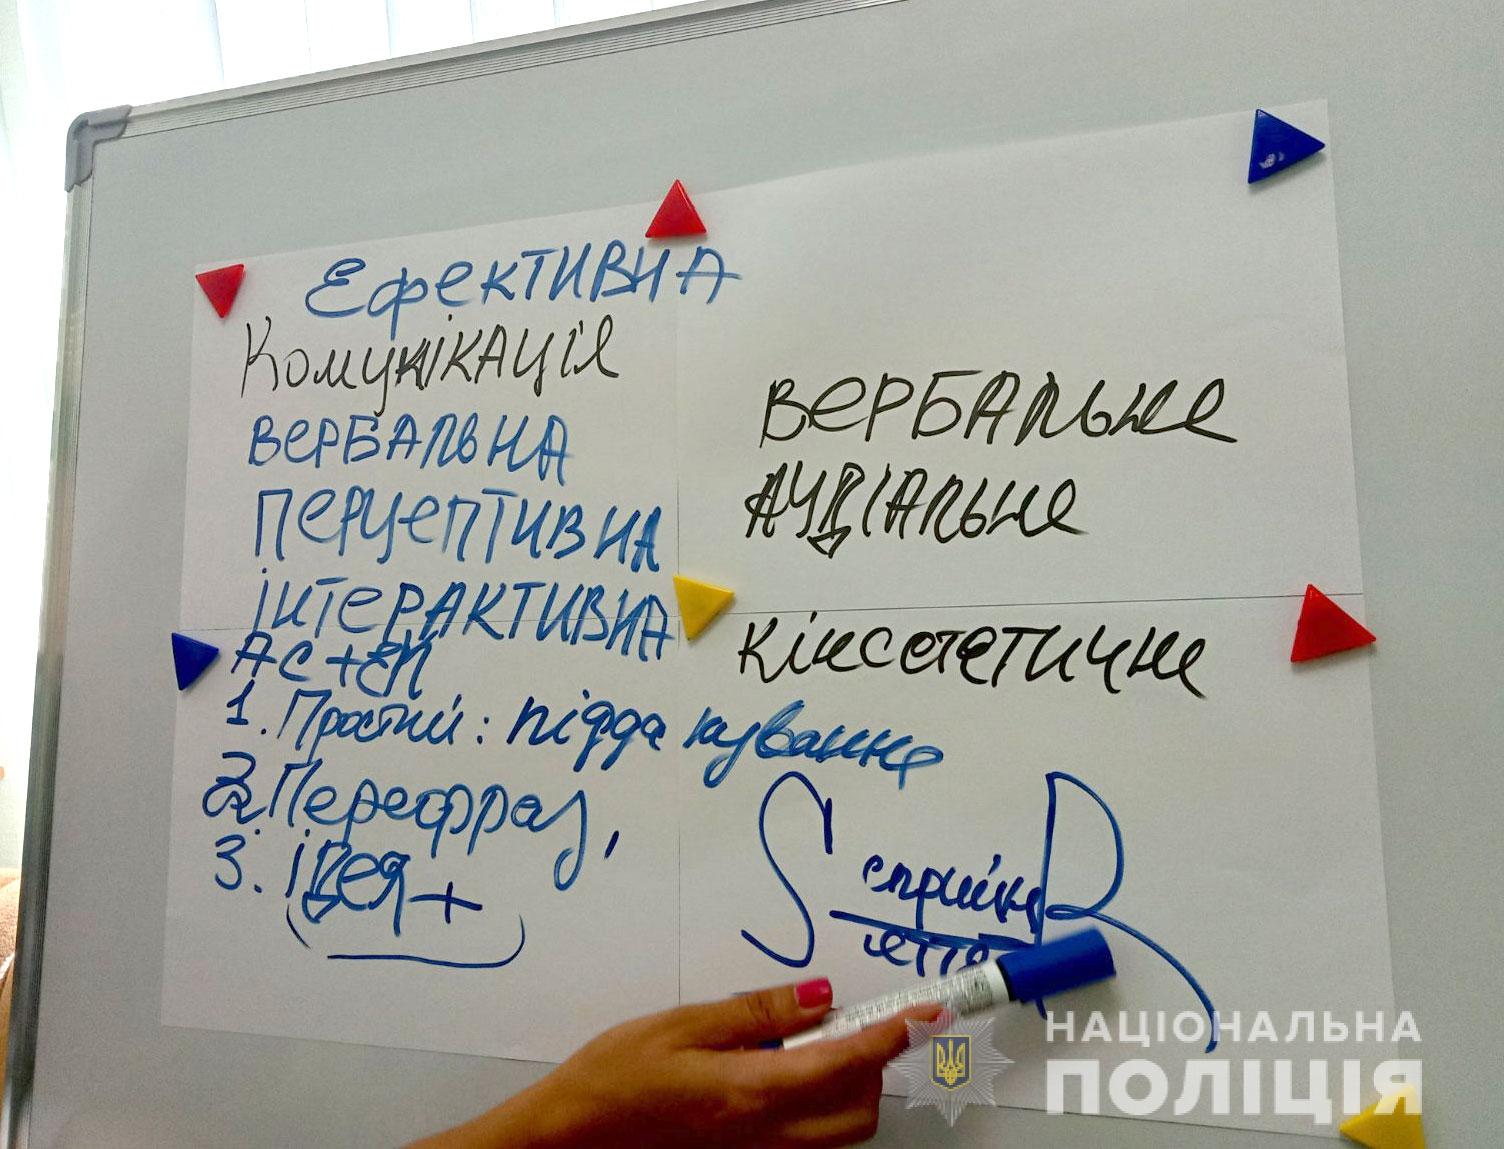 Ефективна
Комунікація
вербальна
перцептивна
інтерактивна
1. Простий: підда
2. Перефраз,
3. ідея +
вербальне
аудіальне
S сприйн R
НАЦІОНАЛЬНА
ПОЛІЦІЯ